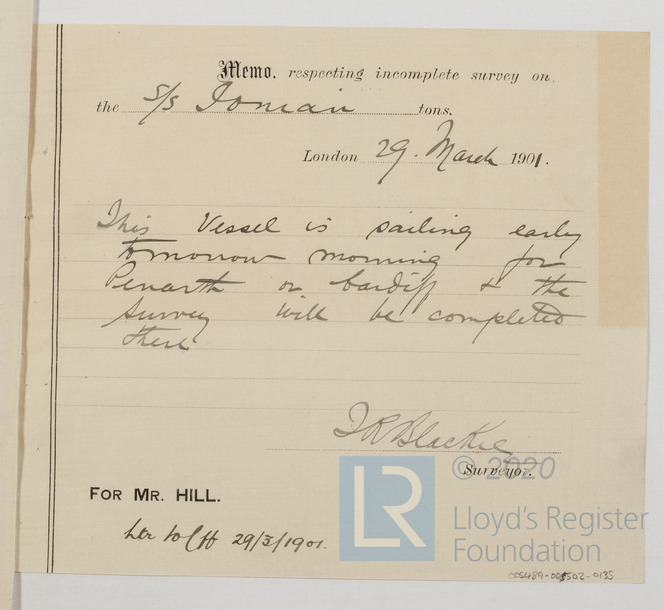 Memo. respecting incomplete survey on
the S/S Ionian tons.
London 29. March 1901.
This Vessel is sailing early
tomorrow morning for
Penarth or Cardiff & the
Survey will be completed
there
J R Blackie
Surveyor.
FOR MR. HILL.
29/3/1901.
© 2020
LR
Lloyd's Register
Foundation